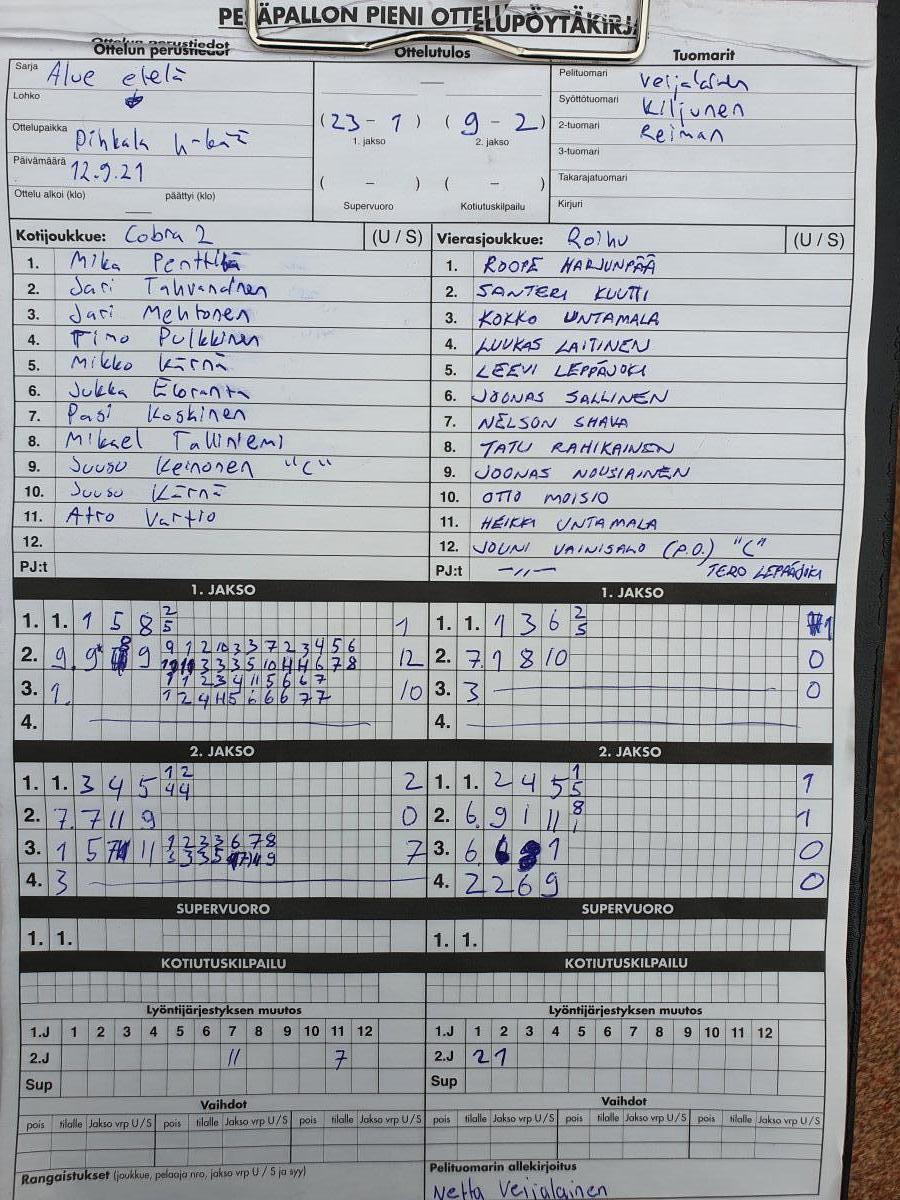 PESÄPALLON PIENI OTTELUPÖYTÄKIRJA
Ottelun perustiedot
Ottelutulos
Tuomarit
Sarja Alue etelä
Lohko
Ottelupaikka Pihkala
Päivämäärä 12.9.21
Ottelu alkoi (klo) päättyi (klo)
(23 - 1) (9 - 2)
1. jakso 2. jakso
( - ) ( - )
Supervuoro Kotiutuskilpailu
Pelituomari Veijalainen
Syöttötuomari Kiljunen
2-tuomari Reiman
3-tuomari
Takarajatuomari
Kirjuri
Kotijoukkue: Cobra 2 (U / S)
1. Mika Penttilä
2. Jari Tahvanainen
3. Jari Mehtonen
4. Timo Pulkkinen
5. Mikko Kärnä
6. Jukka Eloranta
7. Pasi Koskinen
8. Mikael Talliniemi
9. Juuso Keinonen "C"
10. Juuso Kärnä
11. Atro Vartio
12.
PJ:t
Vierasjoukkue: Roihu (U / S)
1. ROOPE HARJUNPÄÄ
2. SANTERI KUUTTI
3. KOKKO UNTAMALA
4. LUUKAS LAITINEN
5. LEEVI LEPPÄJOKI
6. JOONAS SALLINEN
7. NELSON SHAVA
8. TATU RAHIKAINEN
9. JOONAS NOUSIAINEN
10. OTTO MOISIO
11. HEIKKI UNTAMALA
12. JOUNI VAINISALO (P.O.) "C"
PJ:t —"— TERO LEPPÄJOKI
1. JAKSO
1. 1. 1 5 8 2 5 1
2. 9. 9 9 9 1 2 10 3 3 7 2 3 4 5 6 12
3 3 3 5 10 4 4 6 7 8
3. 1. 1 1 2 3 4 11 5 6 6 7 10
1 2 4 4 6 6 6 7 7
4.
1. JAKSO
1. 1. 1 3 6 2 5 1
2. 7. 1 8 10 0
3. 3 0
4.
2. JAKSO
1. 1. 3 4 5 1 2 4 4 2
2. 7. 7 11 9 0
3. 1 5 11 1 2 3 3 6 7 8 7
3 3 3 5 9
4. 3
2. JAKSO
1. 1. 2 4 5 1 5 1
2. 6. 9 1 11 8 1 1
3. 6. 1 0
4. 2 2 6 9 0
SUPERVUORO
1. 1.
SUPERVUORO
1. 1.
KOTIUTUSKILPAILU
KOTIUTUSKILPAILU
Lyöntijärjestyksen muutos
1.J 1 2 3 4 5 6 7 8 9 10 11 12
2.J 11 7
Sup
Lyöntijärjestyksen muutos
1.J 1 2 3 4 5 6 7 8 9 10 11 12
2.J 2 1
Sup
Vaihdot
pois tilalle Jakso vrp U / S pois tilalle Jakso vrp U / S pois tilalle Jakso vrp U / S
Vaihdot
pois tilalle Jakso vrp U / S pois tilalle Jakso vrp U / S pois tilalle Jakso vrp U / S
Rangaistukset (joukkue, pelaaja nro, jakso vrp U / S ja syy)
Pelituomarin allekirjoitus
Netta Veijalainen